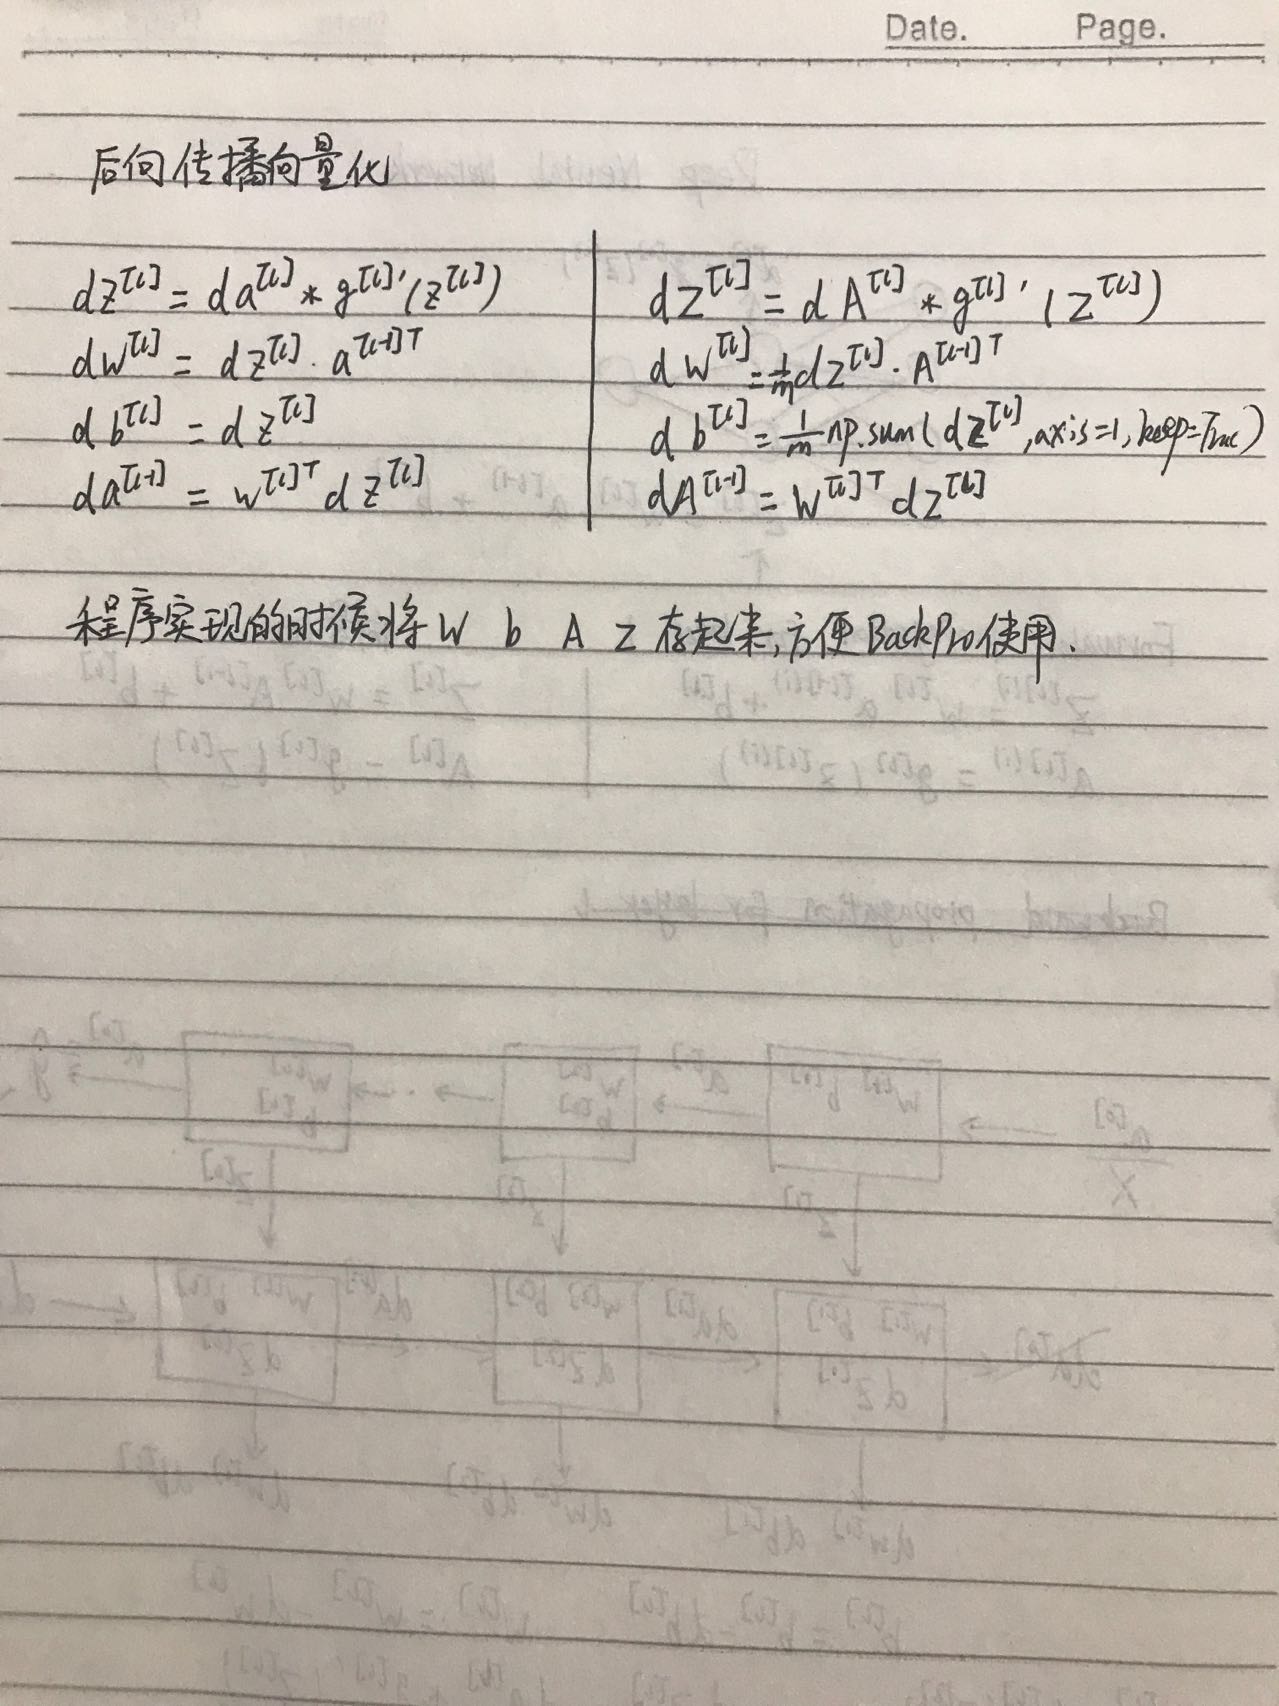 Date. Page.
后向传播向量化
dz^[l] = da^[l] * g^[l]'(z^[l])
dw^[l] = dz^[l] · a^[l-1]T
db^[l] = dz^[l]
da^[l-1] = w^[l]T dz^[l]
dZ^[l] = dA^[l] * g^[l]'(Z^[l])
dW^[l] = 1/m dZ^[l] · A^[l-1]T
db^[l] = 1/m np.sum(dZ^[l], axis=1, keep=True)
dA^[l-1] = W^[l]T dZ^[l]
程序实现的时候将 W b A Z 存起来,方便BackPro使用.